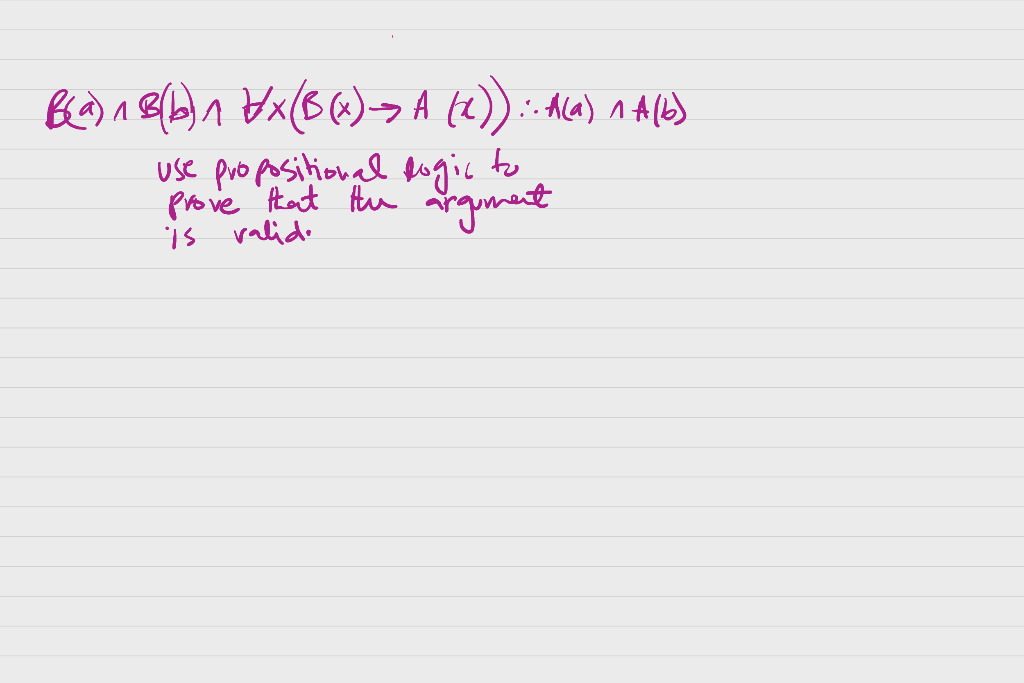 B(a) ∧ B(b) ∧ ∀x(B(x) → A(x)) ∴ A(a) ∧ A(b)
use propositional logic to
prove that the argument
is valid.